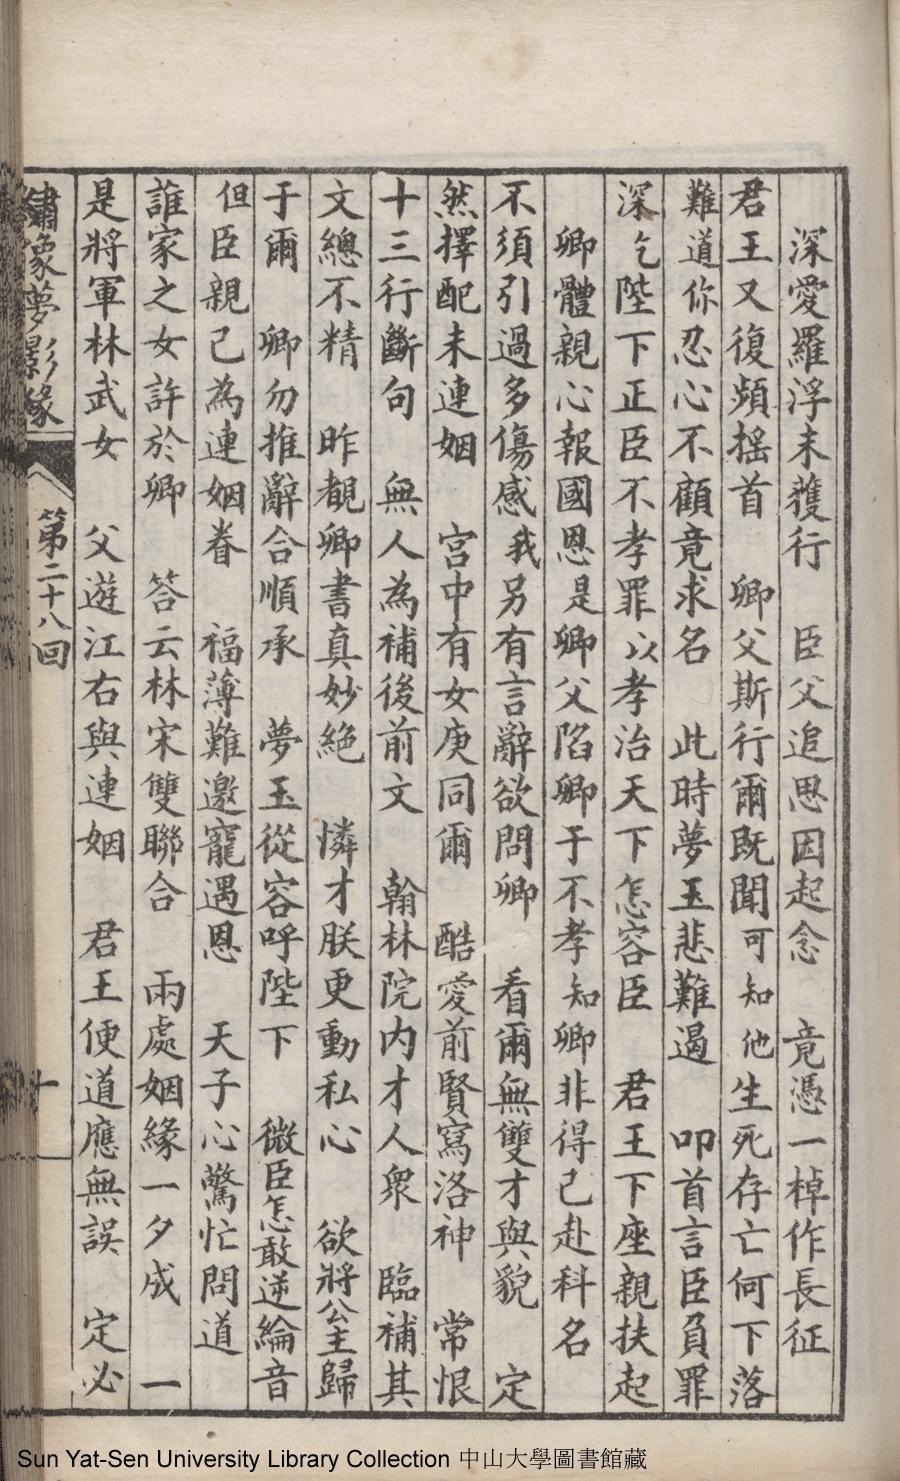 深愛羅浮未獲行　臣父追思因起念　竟憑一棹作長征
君王又復頻搖首　卿父斯行爾既聞可知他生死存亡何下落
難道你忍心不顧竟求名　此時夢玉悲難遏　叩首言臣負罪
深乞陛下正臣不孝罪以孝治天下怎容臣　君王下座親扶起
卿體親心報國恩是卿父陷卿于不孝知卿非得已赴科名
不須引過多傷感我另有言辭欲問卿　看爾無雙才與貌　定
然擇配未連姻　宮中有女庚同爾　酷愛前賢寫洛神　常恨
十三行斷句　無人為補後前文　翰林院内才人衆　臨補其
文總不精　昨覩卿書真妙絕　憐才朕更動私心　欲將公主歸
于爾　卿勿推辭合順承　夢玉從容呼陛下　微臣怎敢逆綸音
但臣親已為連姻眷　福薄難邀寵遇恩　天子心驚忙問道
誰家之女許於卿　答云林宋雙聯合　兩處姻緣一夕成　一
是將軍林武女　父遊江右與連姻　君王便道應無誤　定必
繡像夢影緣　第二十八回　十
Sun Yat-Sen University Library Collection 中山大學圖書館藏